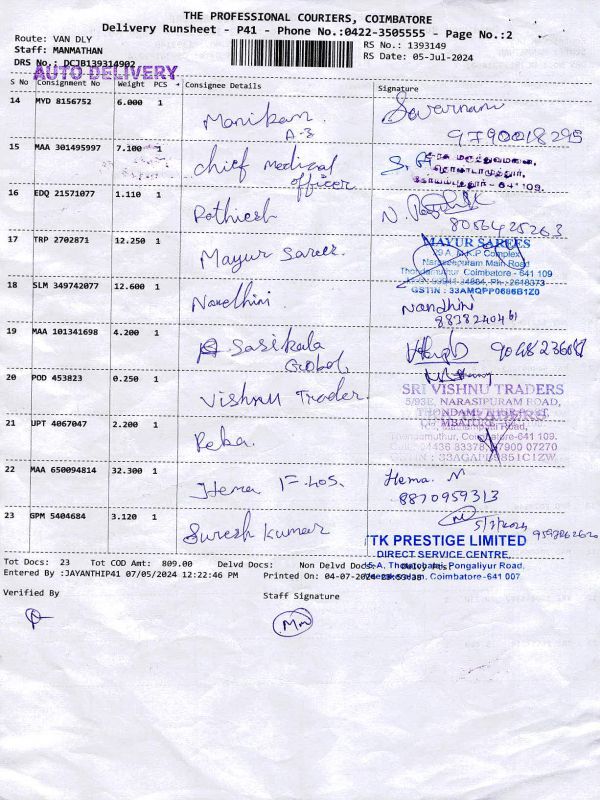 THE PROFESSIONAL COURIERS, COIMBATORE
Delivery Runsheet - P41 - Phone No.:0422-3505555 - Page No.:2
Route: VAN DLY
RS No.: 1393149
Staff: MANMATHAN
RS Date: 05-Jul-2024
DRS No.: DCJB139314902
AUTO DELIVERY
S No Consignment No Weight PCS Consignee Details Signature
14 MYD 8156752 6.000 1 Manikan. A-3
9790018295
15 MAA 301495997 7.100 1 chief medical officer
16 EDQ 21571077 1.110 1 Rothiesh
8056425263
17 TRP 2702871 12.250 1 Mayur Sarees.
MAYUR SAREES
Narasipuram Main Road
Thondamuthur, Coimbatore - 641 109
GSTIN : 33AMQPP0686B1Z0
18 SLM 349742077 12.600 1 Nandhini Nandhini
19 MAA 101341698 4.200 1 Sasikala Global,
20 POD 453823 0.250 1 Vishnu Trader.
SRI VISHNU TRADERS
5/93E, NARASIPURAM ROAD,
21 UPT 4067047 2.200 1 Reka.
22 MAA 650094814 32.300 1 Hema Hema. N
8870959313
23 GPM 5404684 3.120 1 Suresh kumar
5/7/2024
TTK PRESTIGE LIMITED
DIRECT SERVICE CENTRE,
Pongaliyur Road,
Coimbatore-641 007
Tot Docs: 23 Tot COD Amt: 809.00 Delvd Docs: Non Delvd Docs:
Entered By :JAYANTHIP41 07/05/2024 12:22:46 PM Printed On: 04-07-2024
Verified By Staff Signature
Mm